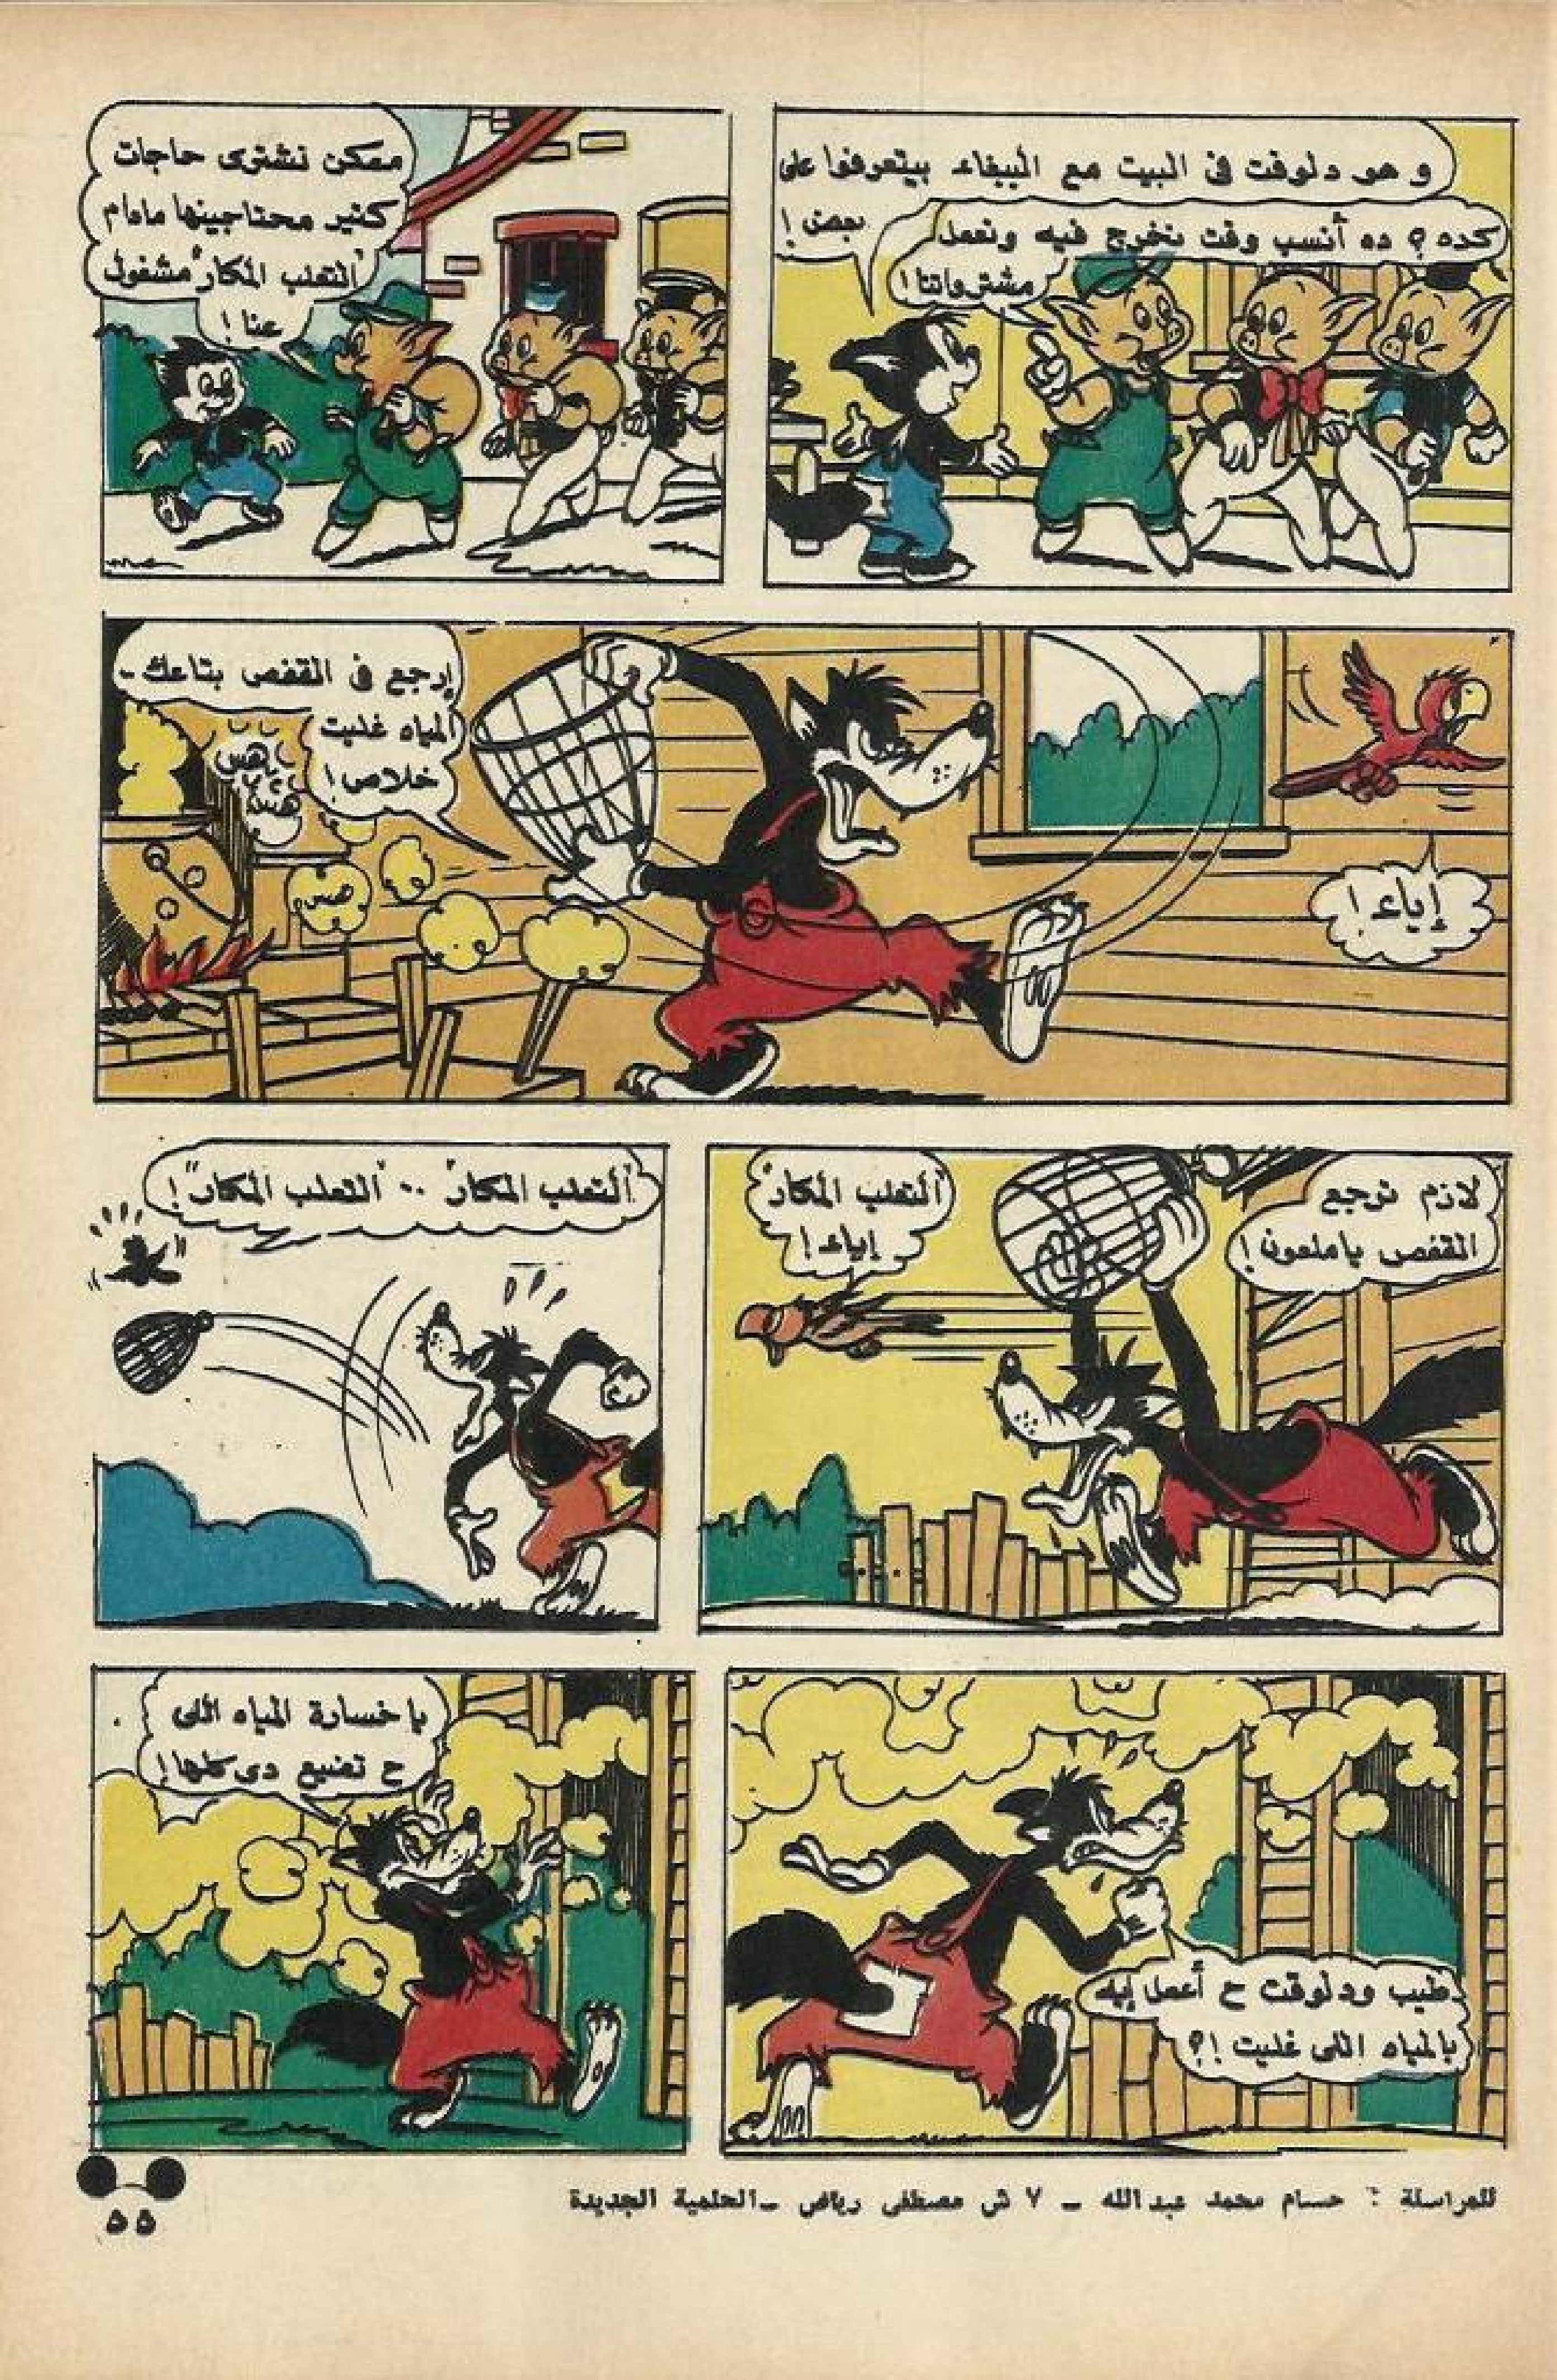 و هو دلوقت فى البيت مع الببغاء بيتعرفوا على
بعض !
كده ؟ ده أنسب وقت نخرج فيه ونعمل
مشترواتنا !
ممكن نشترى حاجات
كثير محتاجينها مادام
"الثعلب المكار" مشغول
عنا !
إرجع فى القفص بتاعك ..
المياه غليت
خلاص !
إياء !
لازم ترجع
القفص ياملعون !
"الثعلب المكار"
إياء !
"الثعلب المكار" .. "الثعلب المكار" !
طيب ودلوقت ح أعمل إيه
بالمياه اللى غليت !؟
ياخسارة المياه اللى
ح تضيع دى كلها !
للمراسلة : حسام محمد عبدالله - ٧ ش مصطفى رياض - الحلمية الجديدة
٥٥